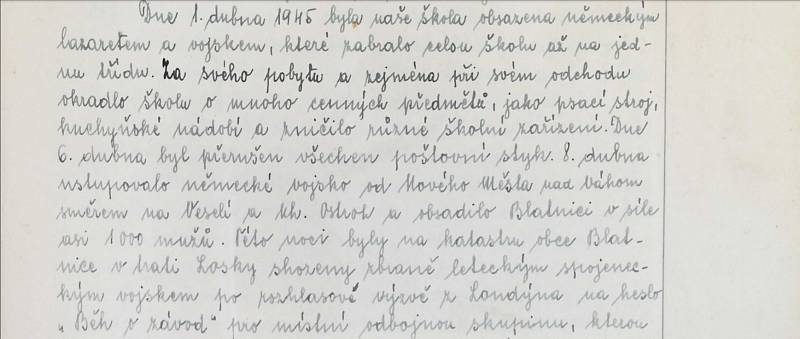 Dne 1. dubna 1945 byla naše škola obsazena německým
lazaretem a vojskem, které zabralo celou školu až na jed-
nu třídu. Za svého pobytu a zejména při svém odchodu
okradlo školu o mnoho cenných předmětů, jako psací stroj,
kuchyňské nádobí a zničilo různé školní zařízení. Dne
6. dubna byl přerušen všechen poštovní styk. 8. dubna
ustupovalo německé vojsko od Nového Města nad Váhom
směrem na Veselí a Uh. Ostroh a obsadilo Blatnici v síle
asi 1000 mužů. Této noci byly na katastru obce Blat-
nice v trati Losky shozeny zbraně leteckým spojenec-
kým vojskem po rozhlasové výzvě z Londýna na heslo
„Běh o závod" pro místní odbojnou skupinu, kterou